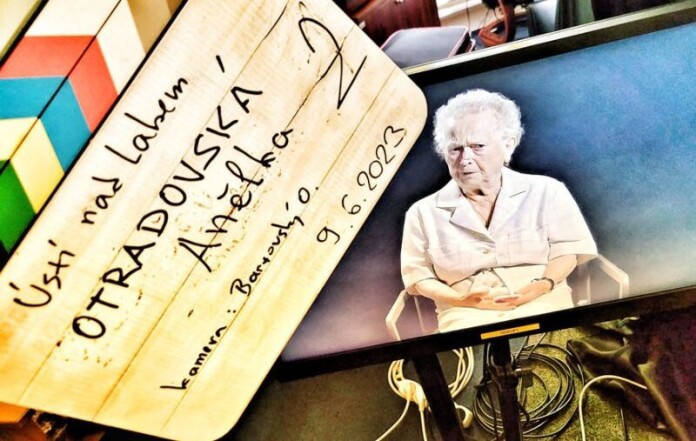 Ústí nad Labem
OTRADOVSKÁ
Anělka
2
kamera: Barvovský O.
9.6.2023